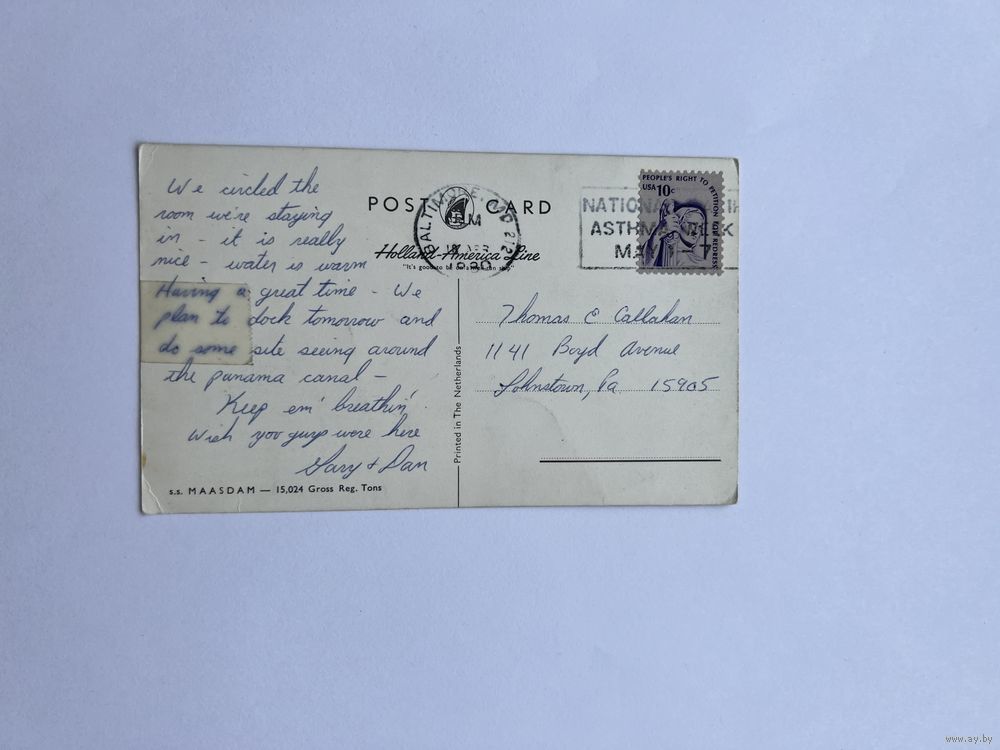 We circled the
room we're staying
in - it is really
nice - water is warm
Having a great time - We
plan to dock tomorrow and
do some site seeing around
the panama canal -
Keep em' breathin'
Wish you guys were here
Gary & Dan
s.s. MAASDAM — 15,024 Gross Reg. Tons
POST CARD
Holland-America Line
"It's good to be on a
Printed in The Netherlands
BALTIMORE, MD 212
PM
APR
1980
NATIONAL
ASTHMA WEEK
MAY 1 7
PEOPLE'S RIGHT TO PETITION FOR REDRESS
USA 10c
Thomas E Callahan
1141 Boyd Avenue
Johnstown, Pa 15905
www.ay.by